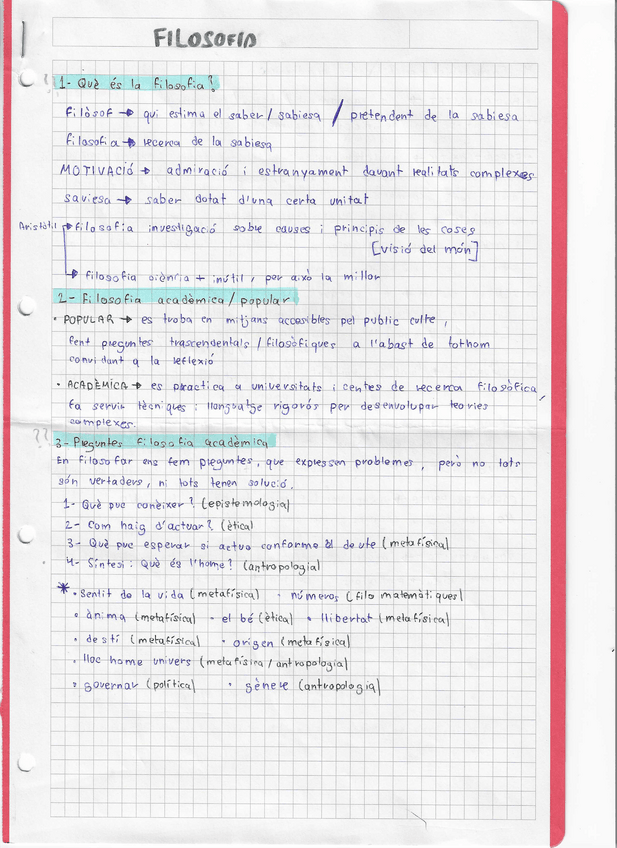 FILOSOFIA
1- Què és la filosofia?
Filòsof → qui estima el saber / sabiesa / pretendent de la sabiesa
Filosofia → recerca de la sabiesa
MOTIVACIÓ → admiració i estranyament davant realitats complexes
saviesa → saber dotat d'una certa unitat
Aristòtil → filosofia investigació sobre causes i principis de les coses
[visió del món]
→ filosofia ciència + inútil, per això la millor
2- Filosofia acadèmica / popular
• POPULAR → es troba en mitjans accesibles pel public culte,
fent preguntes trascendentals / filosòfiques a l'abast de tothom
convidant a la reflexió
• ACADÈMICA → es practica a universitats i centes de recerca filosòfica,
fa servir tècniques i llenguatge rigorós per desenvolupar teories
complexes.
?? 3- Preguntes filosofia acadèmica
En filosofar ens fem preguntes, que expressen problemes, però no tots
són vertaders, ni tots tenen solució.
1- Què puc conèixer? (epistemologia)
2- Com haig d'actuar? (ètica)
3- Què puc esperar si actuo conforme al deute (metafísica)
4- Síntesi: Què és l'home? (antropologia)
* • Sentit de la vida (metafísica) • números (filo matemàtiques)
• ànima (metafísica) • el bé (ètica) • llibertat (metafísica)
• destí (metafísica) • origen (metafísica)
• lloc home univers (metafísica / antropologia)
• governar (política) • gènere (antropologia)